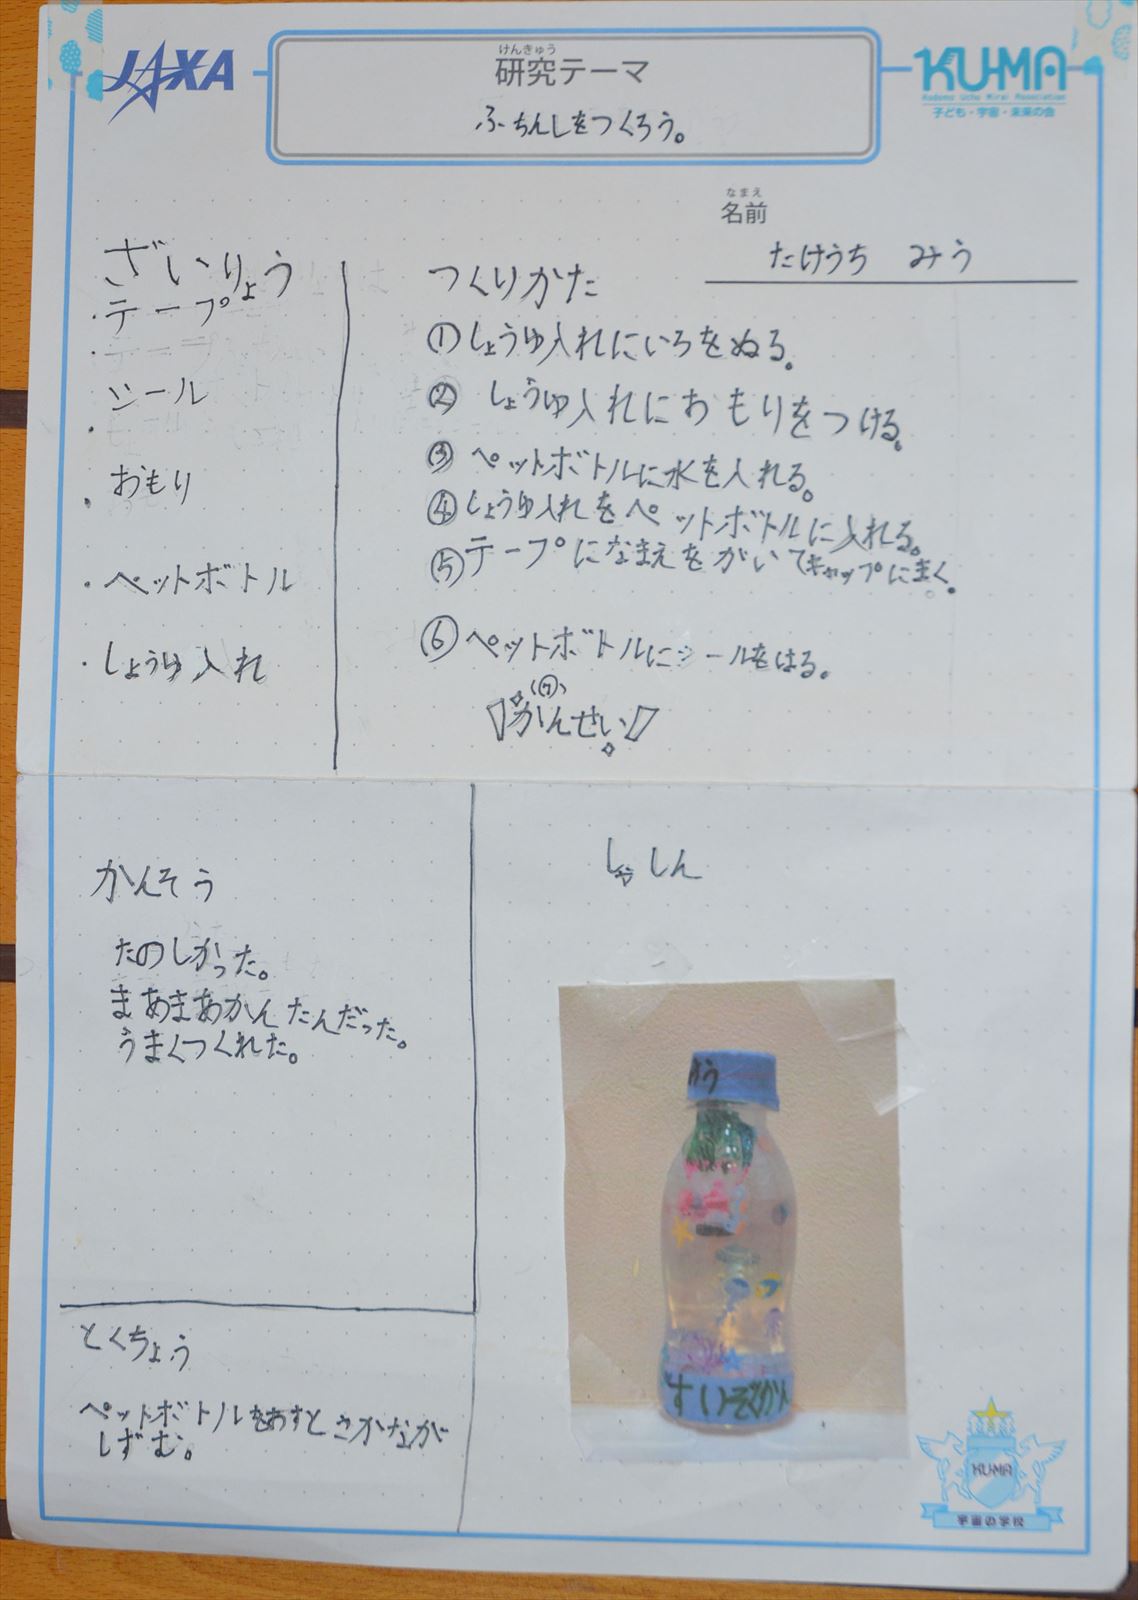 JAXA
けんきゅう
研究テーマ
ふちんしをつくろう。
KU-MA
Kodomo Uchu Mirai Association
子ども・宇宙・未来の会
なまえ
名前
たけうち みう
ざいりょう
・テープ
・シール
・おもり
・ペットボトル
・しょうゆ入れ
つくりかた
①しょうゆ入れにいろをぬる。
②しょうゆ入れにおもりをつける。
③ペットボトルに水を入れる。
④しょうゆ入れをペットボトルに入れる。
⑤テープになまえをかいてキャップにまく。
⑥ペットボトルにシールをはる。
⑦
かんせい
かんそう
たのしかった。
まあまあかんたんだった。
うまくつくれた。
とくちょう
ペットボトルをおすとさかなが
しずむ。
しゃしん
みう
すいぞくかん
KU-MA
宇宙の学校